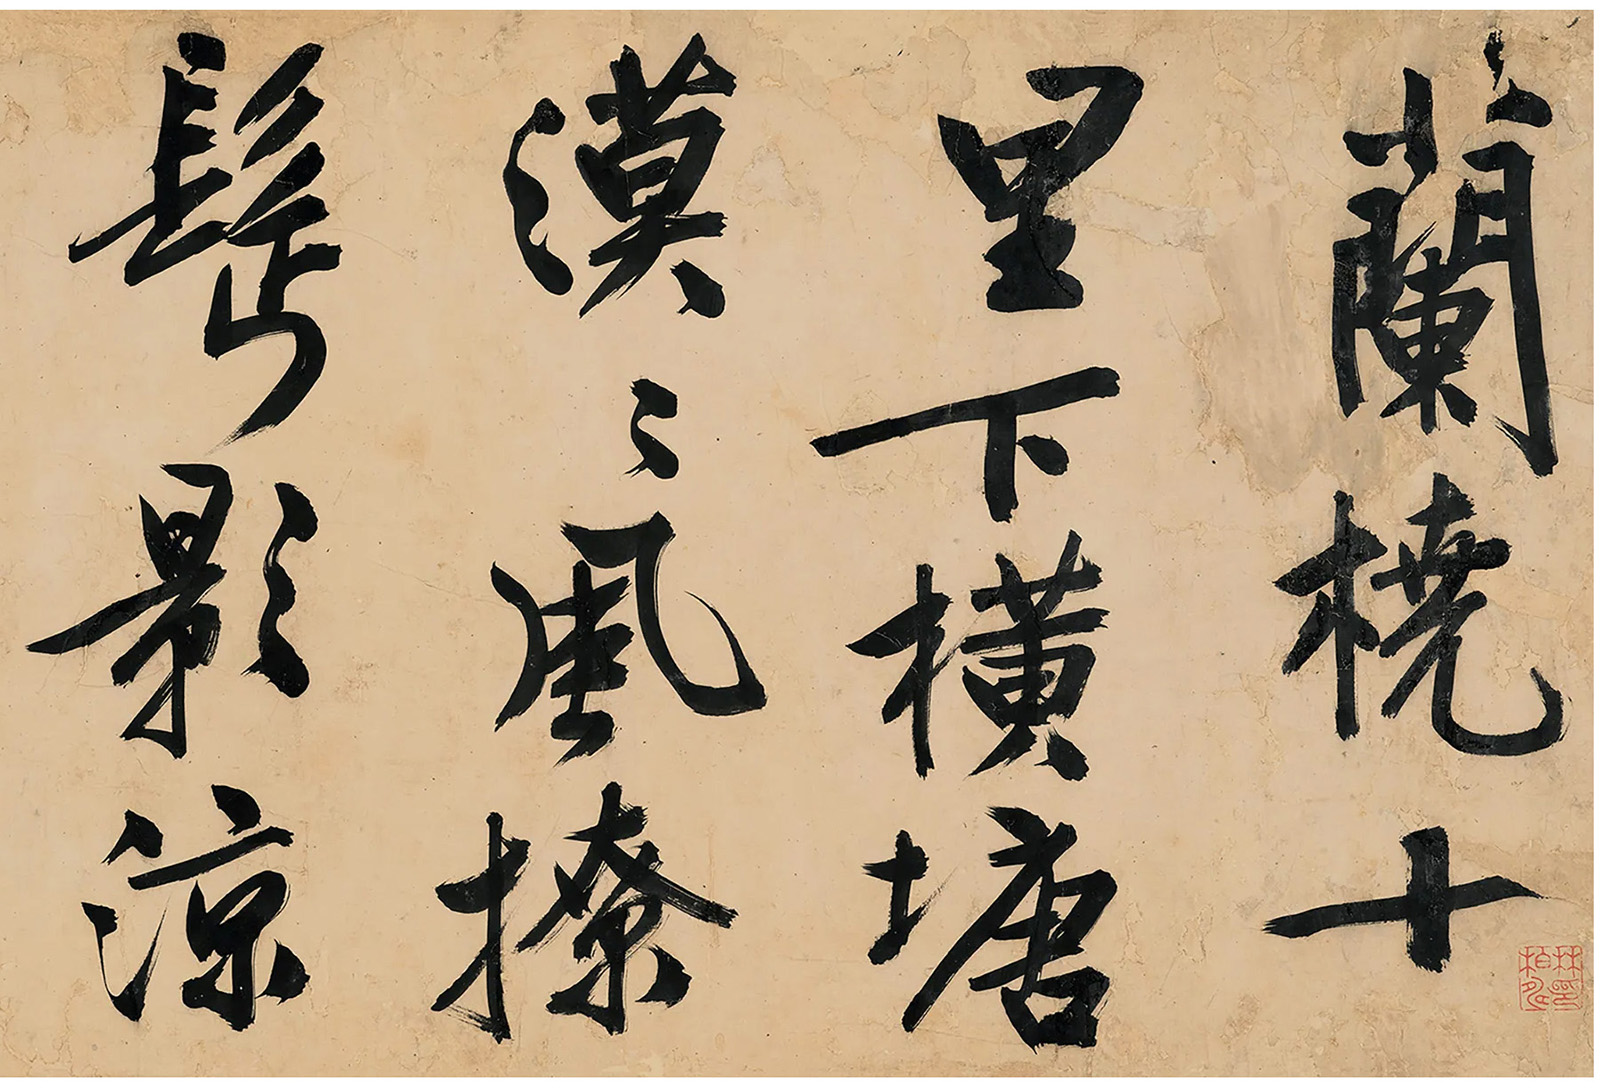 蘭橈十
里下橫塘
漠〻風撩
髩影涼